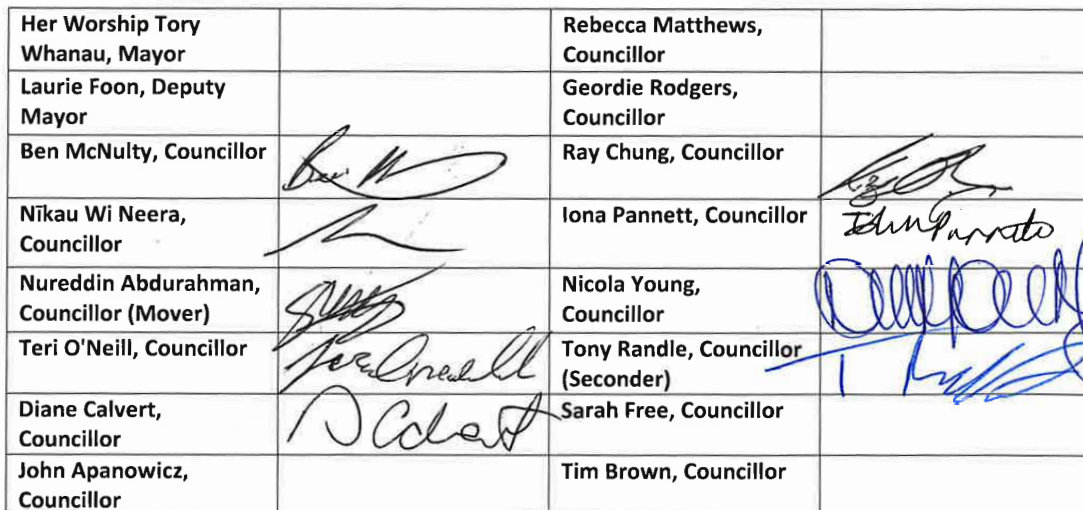 Her Worship Tory
Whanau, Mayor
Rebecca Matthews,
Councillor
Laurie Foon, Deputy
Mayor
Geordie Rodgers,
Councillor
Ben McNulty, Councillor
Ray Chung, Councillor
Nīkau Wi Neera,
Councillor
Iona Pannett, Councillor
Nureddin Abdurahman,
Councillor (Mover)
Nicola Young,
Councillor
Teri O'Neill, Councillor
Tony Randle, Councillor
(Seconder)
Diane Calvert,
Councillor
Sarah Free, Councillor
John Apanowicz,
Councillor
Tim Brown, Councillor